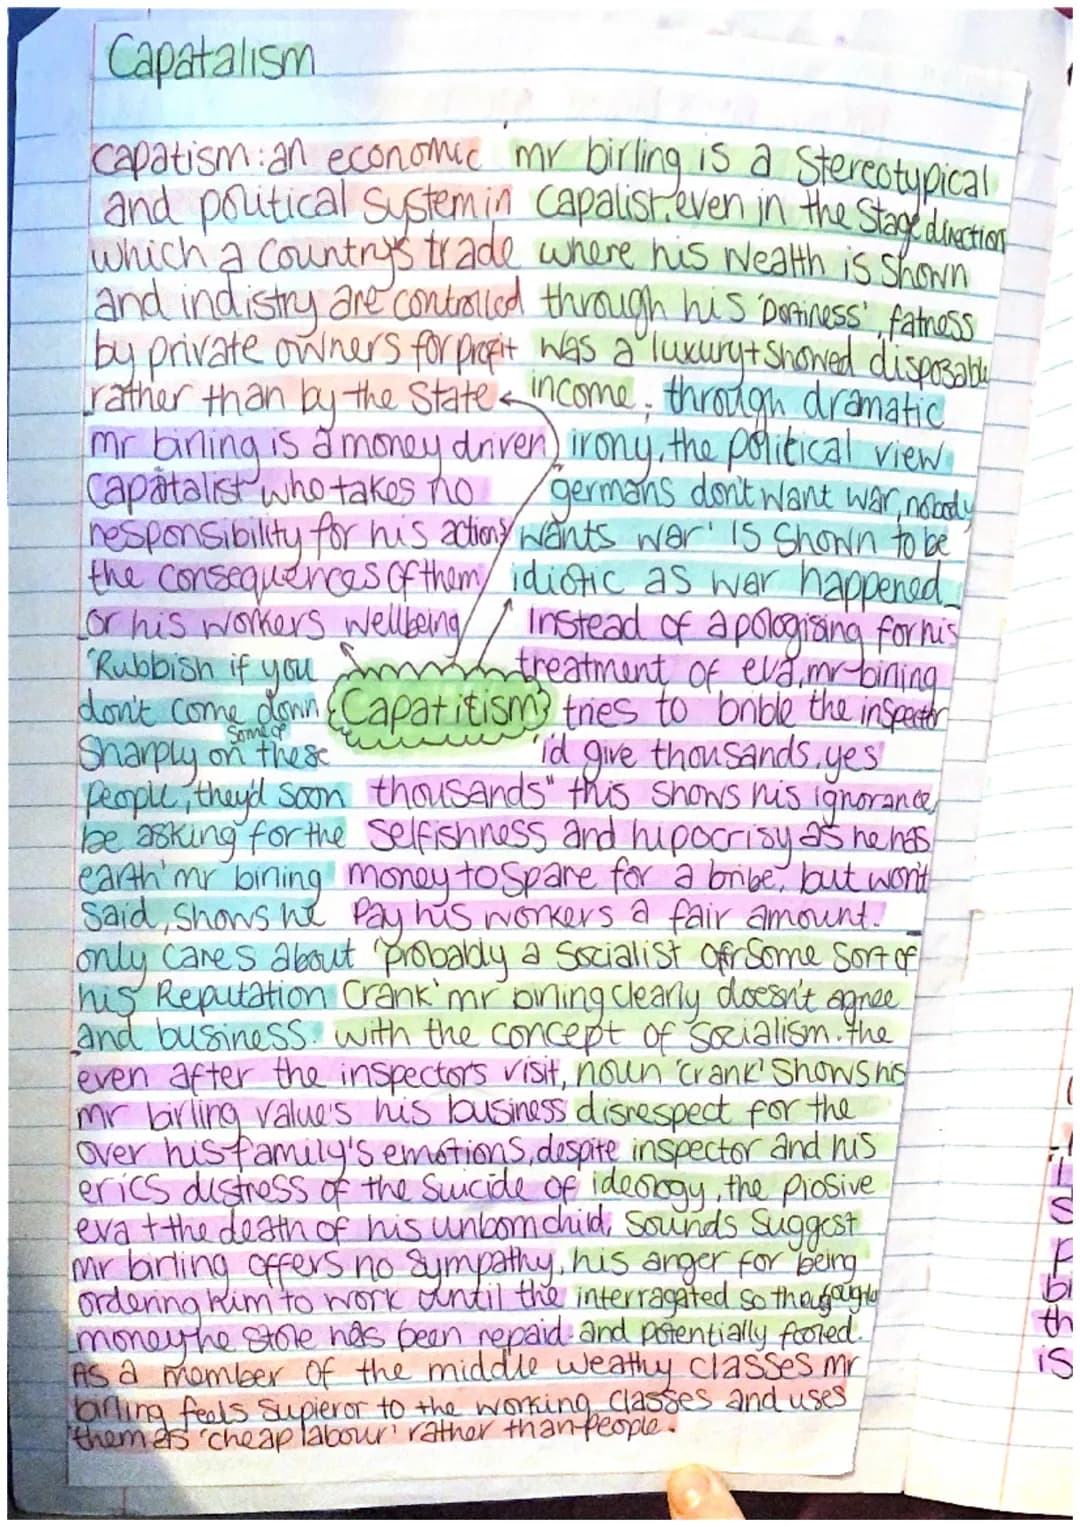 Capatalism
capatism: an economic
and political system in
which a country's trade
and indistry are controlled
by private owners for profit
rather than by the State
mr birling is a stereotypical
capalist. even in the stage direction
where his wealth is shown
through his 'portiness', fatness
was a luxury + showed disposable
income. through dramatic
irony, the political view
germans don't want war, nobody
wants war' is shown to be
idiotic as war happened
mr birling is a money driven
capatalist who takes no
responsibility for his actions
the consequences of them
or his workers wellbeing
Capatitism
Instead of apologising for his
treatment of eva, mr birling
tries to brible the inspector
'id give thousands, yes
thousands" this shows his ignorance,
selfishness and hipocrisy as he has
money to spare for a bribe, but won't
pay his workers a fair amount.
'Rubbish if you
don't come down
sharply on some of these
people, they'd soon
be asking for the
earth' mr birling
said, shows he
only cares about
his Reputation
and business.
'probably a socialist or some sort of
crank' mr birling clearly doesn't agree
with the concept of socialism. the
noun 'crank' shows his
disrespect for the
inspector and his
ideology, the plosive
sounds suggest
his anger for being
interragated so thoroughly
and potentially fooled.
even after the inspectors visit,
mr birling value's his business
over his family's emotions, despite
erics distress of the suicide of
eva + the death of his unborn child,
mr birling offers no sympathy,
ordering him to work until the
money he stole has been repaid.
As a member of the middle weathy classes mr
birling feels supieror to the working classes and uses
them as 'cheap labour' rather than people.
S
p
bi
th
is